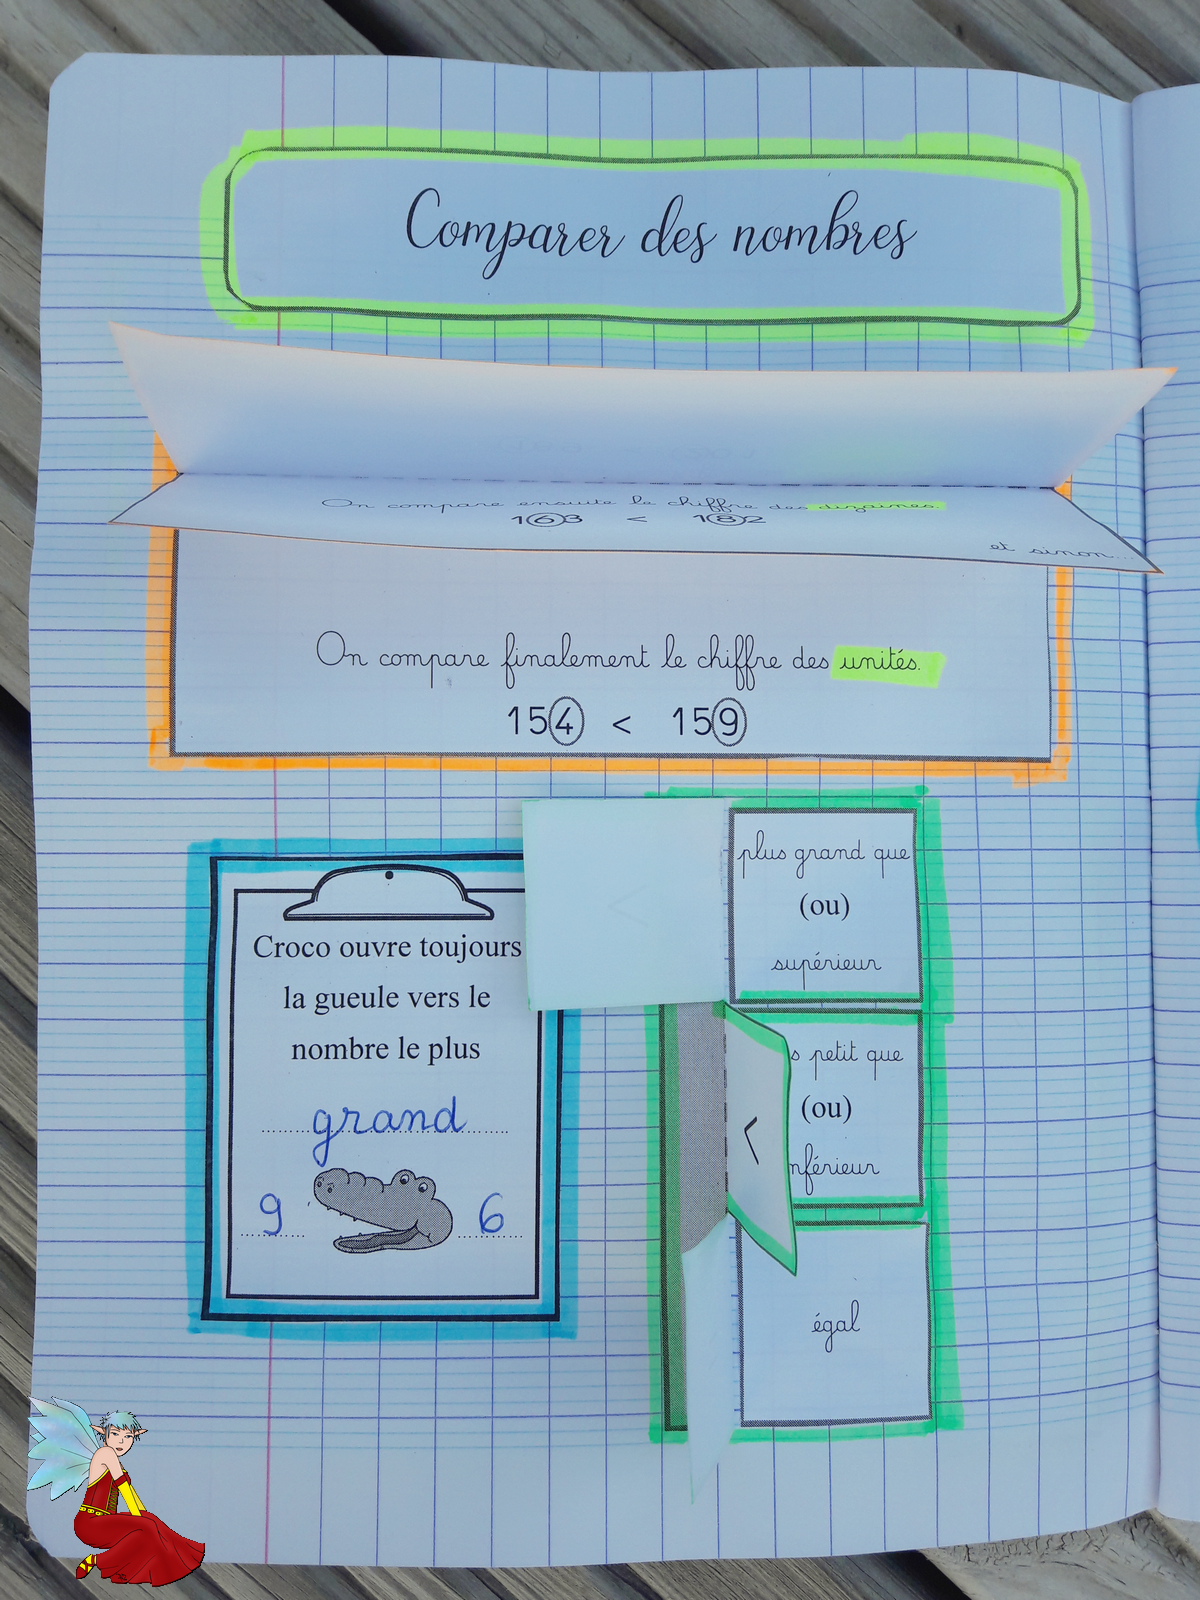 Comparer des nombres
On compare ensuite le chiffre des dizaines.
163 < 182
et sinon...
On compare finalement le chiffre des unités.
154 < 159
Croco ouvre toujours
la gueule vers le
nombre le plus
grand
9 6
plus grand que
(ou)
supérieur
<
s petit que
(ou)
nférieur
égal